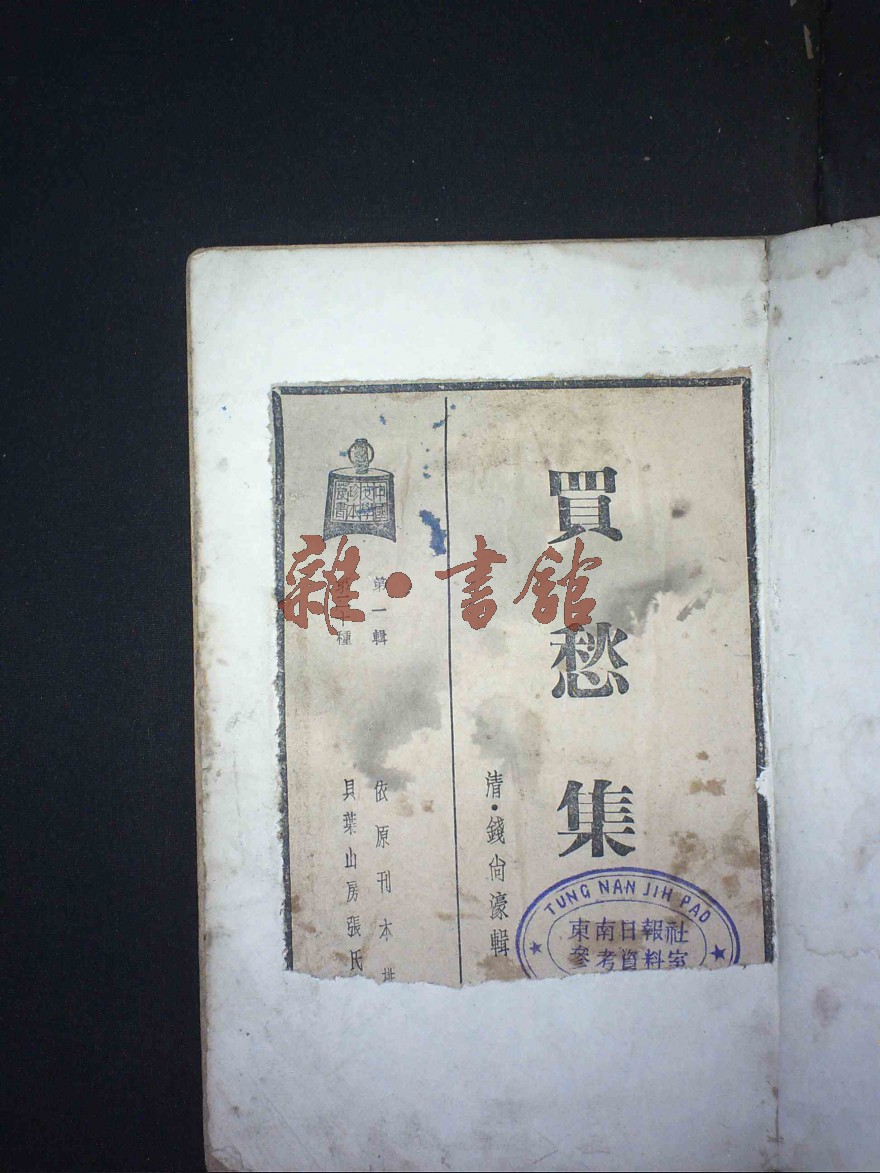 買愁集
清·錢尙濠輯
中國
文學
珍本
叢書
第一輯
第三十種
依原刊本排
貝葉山房張氏
TUNG NAN JIH PAO
東南日報社
參考資料室
雜·書館